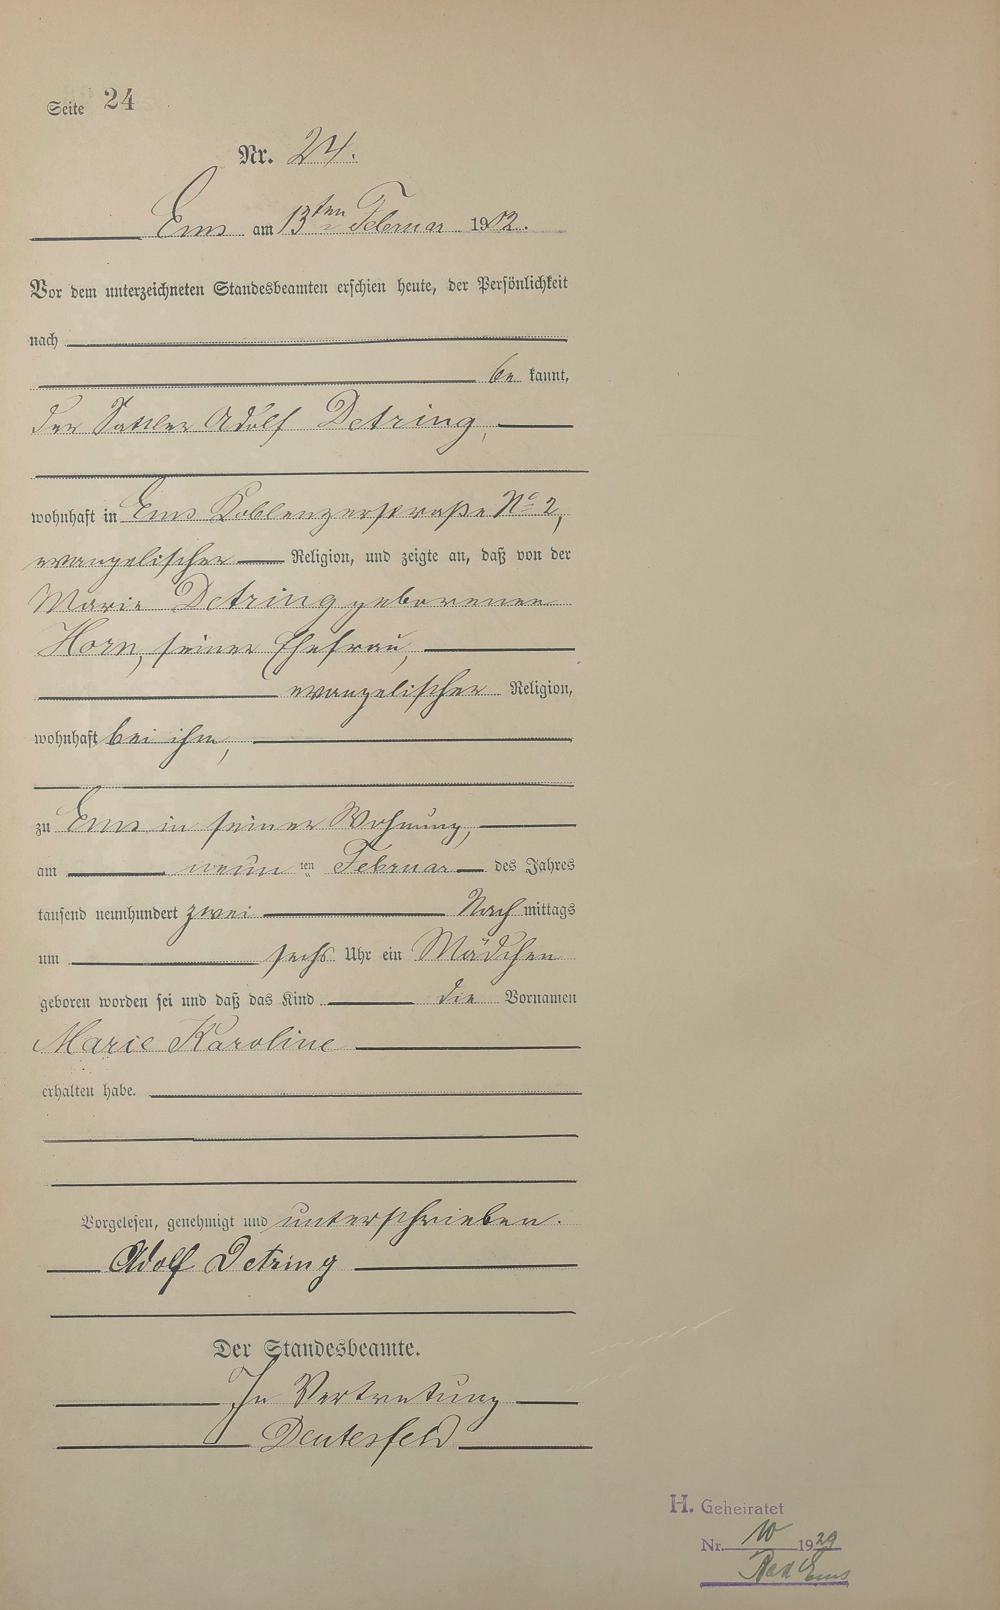 Seite 24
Nr. 24.
Ems am 13ten Februar 1902.
Vor dem unterzeichneten Standesbeamten erschien heute, der Persönlichkeit
nach
be kannt,
der Sattler Adolf Detring,
wohnhaft in Ems Koblenzerstraße No 2,
evangelischer Religion, und zeigte an, daß von der
Marie Detring geborenen
Horn, seiner Ehefrau,
evangelischer Religion,
wohnhaft bei ihm,
zu Ems in seiner Wohnung,
am neun ten Februar des Jahres
tausend neunhundert zwei Nach mittags
um sechs Uhr ein Mädchen
geboren worden sei und daß das Kind die Vornamen
Marie Karoline
erhalten habe.
Vorgelesen, genehmigt und unterschrieben.
Adolf Detring
Der Standesbeamte.
In Vertretung
Deutesfeld
H. Geheiratet
Nr. 10 1929
Bad Ems